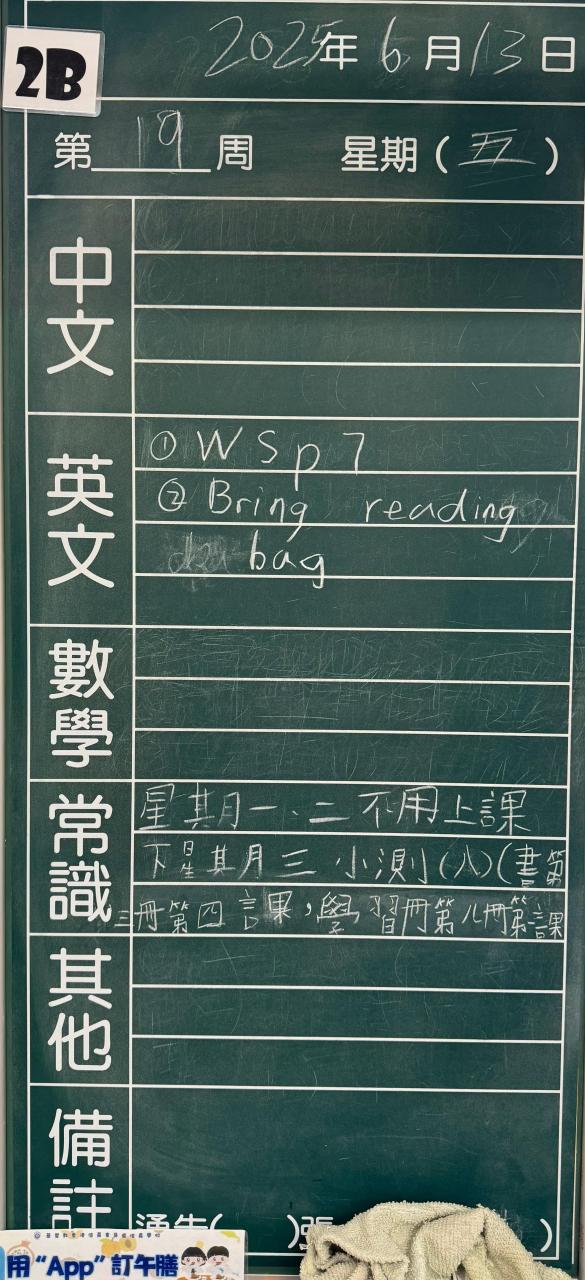 2B
2025年6月13日
第19周 星期(五)
中文
英文
① WS p7
② Bring reading
bag
數學
常識
星期一、二不用上課
下星期三小測(八)(書第
三冊第四課，學習冊第八冊第課
其他
備註
通告( )張 )
用“App”訂午膳